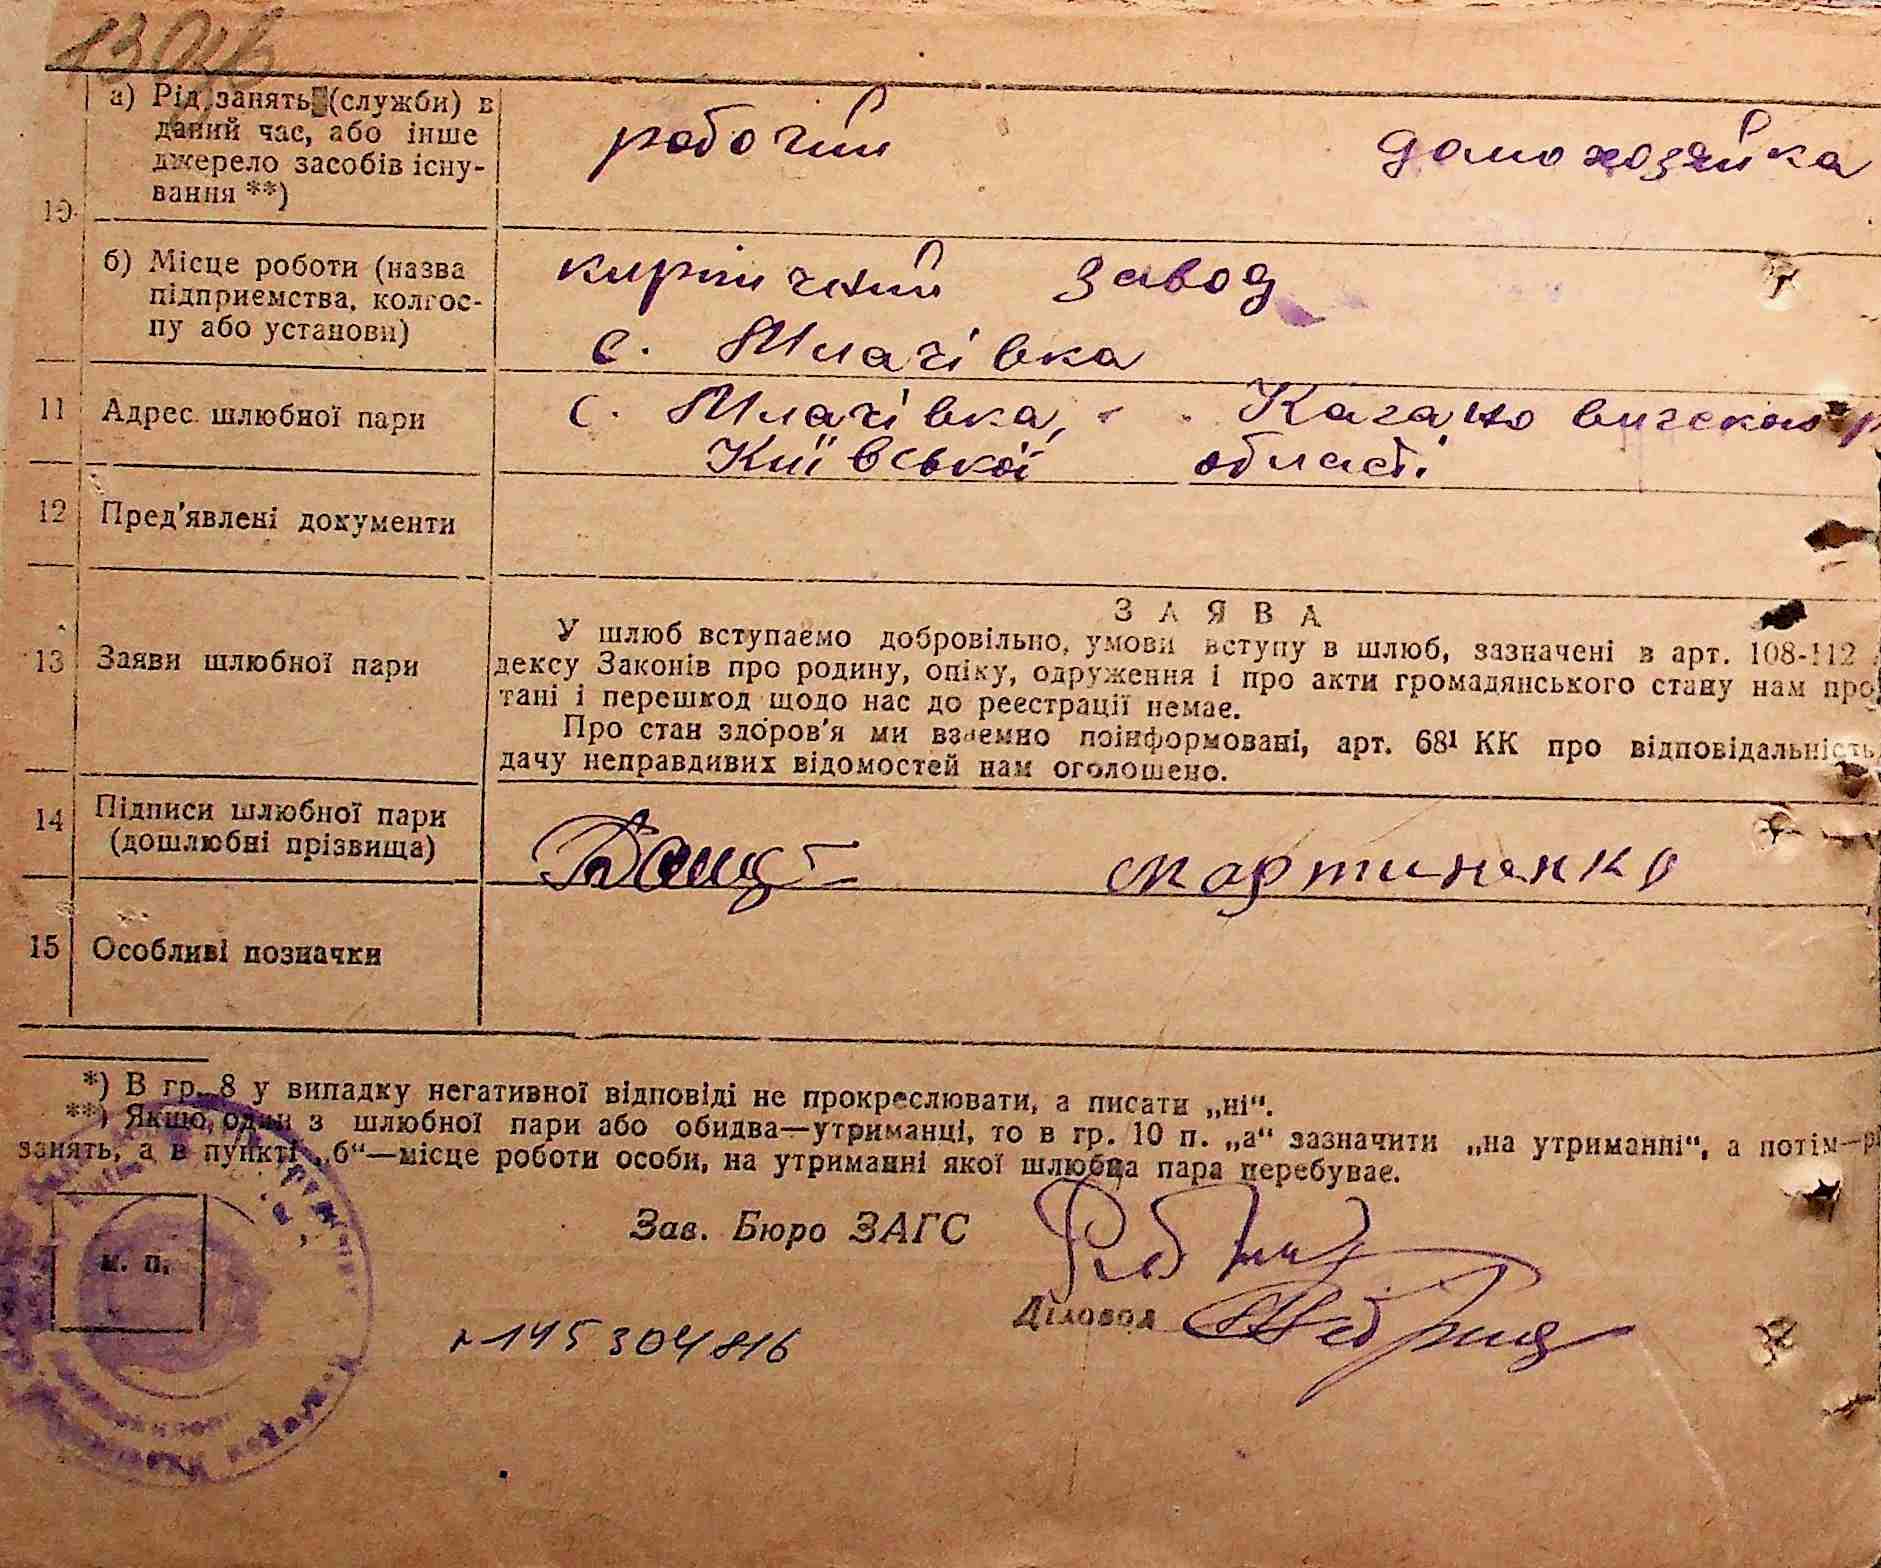 а) Рід занять (служби) в
даний час, або інше
джерело засобів існу-
вання **)
робочий домохозяйка
10
б) Місце роботи (назва
підприємства, колгос-
пу або установи)
кирпичний завод
с. Млачівка
11 Адрес шлюбної пари
с. Млачівка, Кагановическою р
Київської області
12 Пред'явлені документи
13 Заяви шлюбної пари
ЗАЯВА
У шлюб вступаємо добровільно, умови вступу в шлюб, зазначені в арт. 108-112
дексу Законів про родину, опіку, одруження і про акти громадянського стану нам про
тані і перешкод щодо нас до реєстрації немає.
Про стан здоров'я ми взаємно поінформовані, арт. 68¹ КК про відповідальність
дачу неправдивих відомостей нам оголошено.
14 Підписи шлюбної пари
(дошлюбні прізвища)
Мартиненко
15 Особливі позначки
*) В гр. 8 у випадку негативної відповіді не прокреслювати, а писати „ні“.
**) Якщо один з шлюбної пари або обидва—утриманці, то в гр. 10 п. „а“ зазначити „на утриманні“, а потім—рі
занять, а в пункті „б“—місце роботи особи, на утриманні якої шлюбна пара перебуває.
Зав. Бюро ЗАГС
м. п.
Діловод
145 304 816